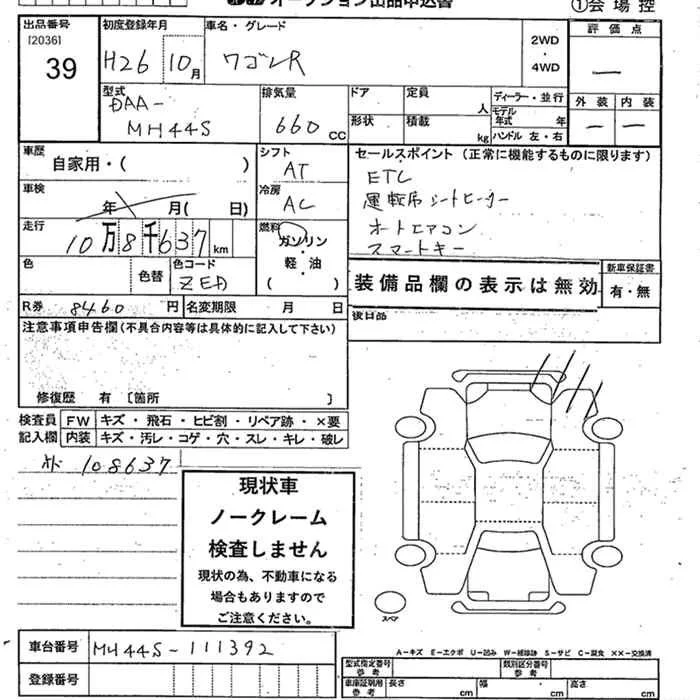 オークション出品申込書
①会場控
出品番号
[2036]
39
初度登録年月
H26 10月
車名・グレード
ワゴンR
2WD
・
4WD
評価点
—
外装 内装
— —
型式
DAA-
MH44S
排気量
660 CC
ドア 定員 人
形状 積載 kg
ディーラー・並行
モデル年式 年
ハンドル 左・右
車歴
自家用・( )
シフト
AT
車検
年 月( 日)
冷房
AC
走行
10万8千637 km
燃料
ガソリン
・
軽・油
( )
色 色替
色コード
ZED
セールスポイント (正常に機能するものに限ります)
ETC
運転席シートヒーター
オートエアコン
スマートキー
装備品欄の表示は無効
新車保証書
有・無
R券 8460 円
名変期限 月 日
後日品
注意事項申告欄(不具合内容等は具体的に記入して下さい)
修復歴 有 [箇所 ]
検査員記入欄
FW キズ・飛石・ヒビ割・リペア跡・×要
内装 キズ・汚レ・コゲ・穴・スレ・キレ・破レ
108637
現状車
ノークレーム
検査しません
現状の為、不動車になる
場合もありますので
ご注意ください。
スペア
車台番号 MH44S-111392
登録番号
A-キズ E-エクボ U-凹み W-補修跡 S-サビ C-腐食 ××-交換済
型式指定番号 参考
類別区分番号 参考
車庫証明用 参考 長さ cm 幅 cm 高さ cm